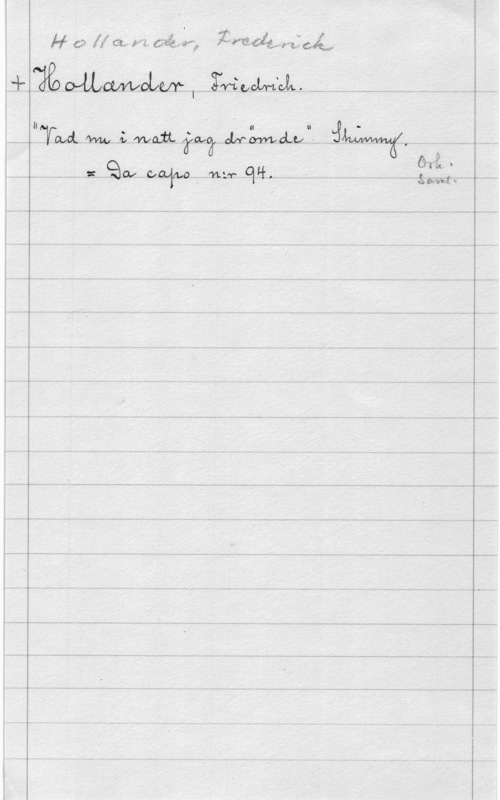 Hollander, Frederick
+ Hollander, Friedrich.
"Vad nu i natt jag drömde" Shimmy.
= Da capo n:r 94.
Ork.
Saml.